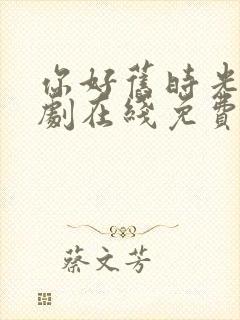 你好舊時光
劇在綫免費
蔡文芳